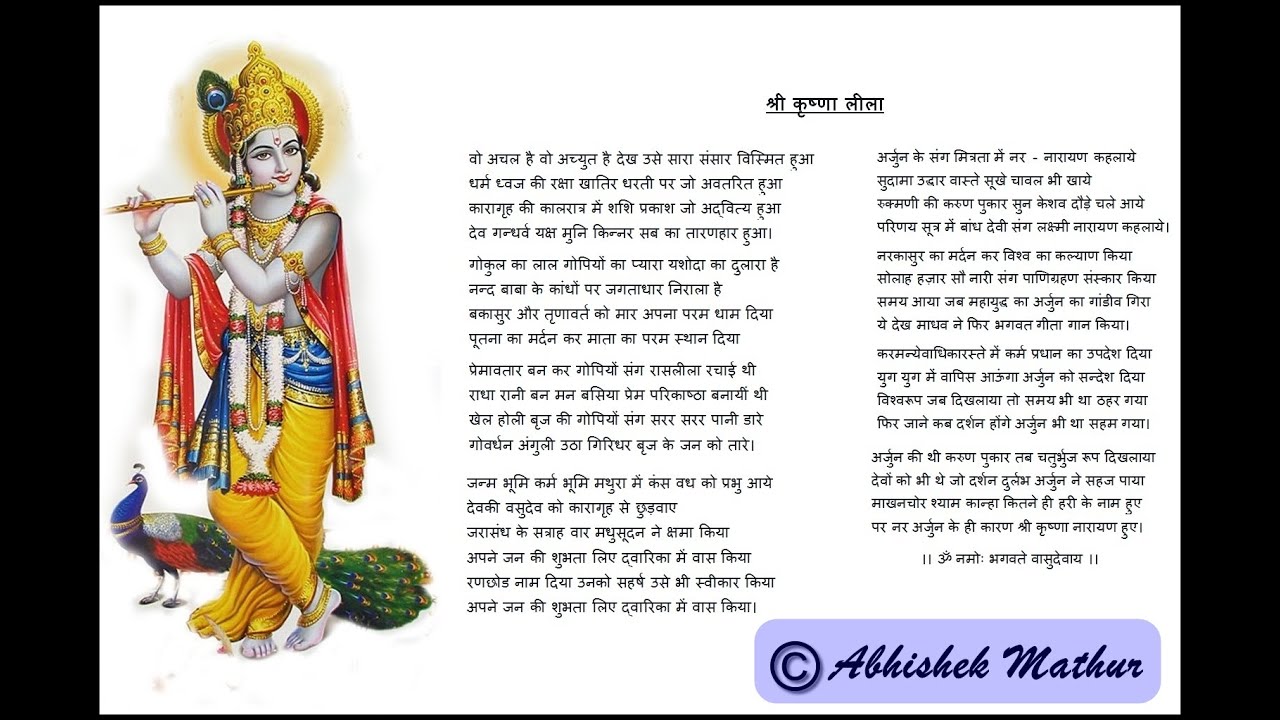 श्री कृष्णा लीला
वो अचल है वो अच्युत है देख उसे सारा संसार विस्मित हुआ
धर्म ध्वज की रक्षा खातिर धरती पर जो अवतरित हुआ
कारागृह की कालरात्र में शशि प्रकाश जो अद्वित्य हुआ
देव गन्धर्व यक्ष मुनि किन्नर सब का तारणहार हुआ।
गोकुल का लाल गोपियों का प्यारा यशोदा का दुलारा है
नन्द बाबा के कांधों पर जगताधार निराला है
बकासुर और तृणावर्त को मार अपना परम धाम दिया
पूतना का मर्दन कर माता का परम स्थान दिया
प्रेमावतार बन कर गोपियों संग रासलीला रचाई थी
राधा रानी बन मन बसिया प्रेम परिकाष्ठा बनायीं थी
खेल होली बृज की गोपियों संग सरर सरर पानी डारे
गोवर्धन अंगुली उठा गिरिधर बृज के जन को तारे।
जन्म भूमि कर्म भूमि मथुरा में कंस वध को प्रभु आये
देवकी वसुदेव को कारागृह से छुड़वाए
जरासंध के सत्राह वार मधुसूदन ने क्षमा किया
अपने जन की शुभता लिए द्वारिका में वास किया
रणछोड नाम दिया उनको सहर्ष उसे भी स्वीकार किया
अपने जन की शुभता लिए द्वारिका में वास किया।
अर्जुन के संग मित्रता में नर - नारायण कहलाये
सुदामा उद्धार वास्ते सूखे चावल भी खाये
रुक्मणी की करुण पुकार सुन केशव दौड़े चले आये
परिणय सूत्र में बांध देवी संग लक्ष्मी नारायण कहलाये।
नरकासुर का मर्दन कर विश्व का कल्याण किया
सोलाह हज़ार सौ नारी संग पाणिग्रहण संस्कार किया
समय आया जब महायुद्ध का अर्जुन का गांडीव गिरा
ये देख माधव ने फिर भगवत गीता गान किया।
करमन्येवाधिकारस्ते में कर्म प्रधान का उपदेश दिया
युग युग में वापिस आऊंगा अर्जुन को सन्देश दिया
विश्वरूप जब दिखलाया तो समय भी था ठहर गया
फिर जाने कब दर्शन होंगे अर्जुन भी था सहम गया।
अर्जुन की थी करुण पुकार तब चतुर्भुज रूप दिखलाया
देवों को भी थे जो दर्शन दुर्लभ अर्जुन ने सहज पाया
माखनचोर श्याम कान्हा कितने ही हरी के नाम हुए
पर नर अर्जुन के ही कारण श्री कृष्णा नारायण हुए।
।। ॐ नमोः भगवते वासुदेवाय ।।
© Abhishek Mathur